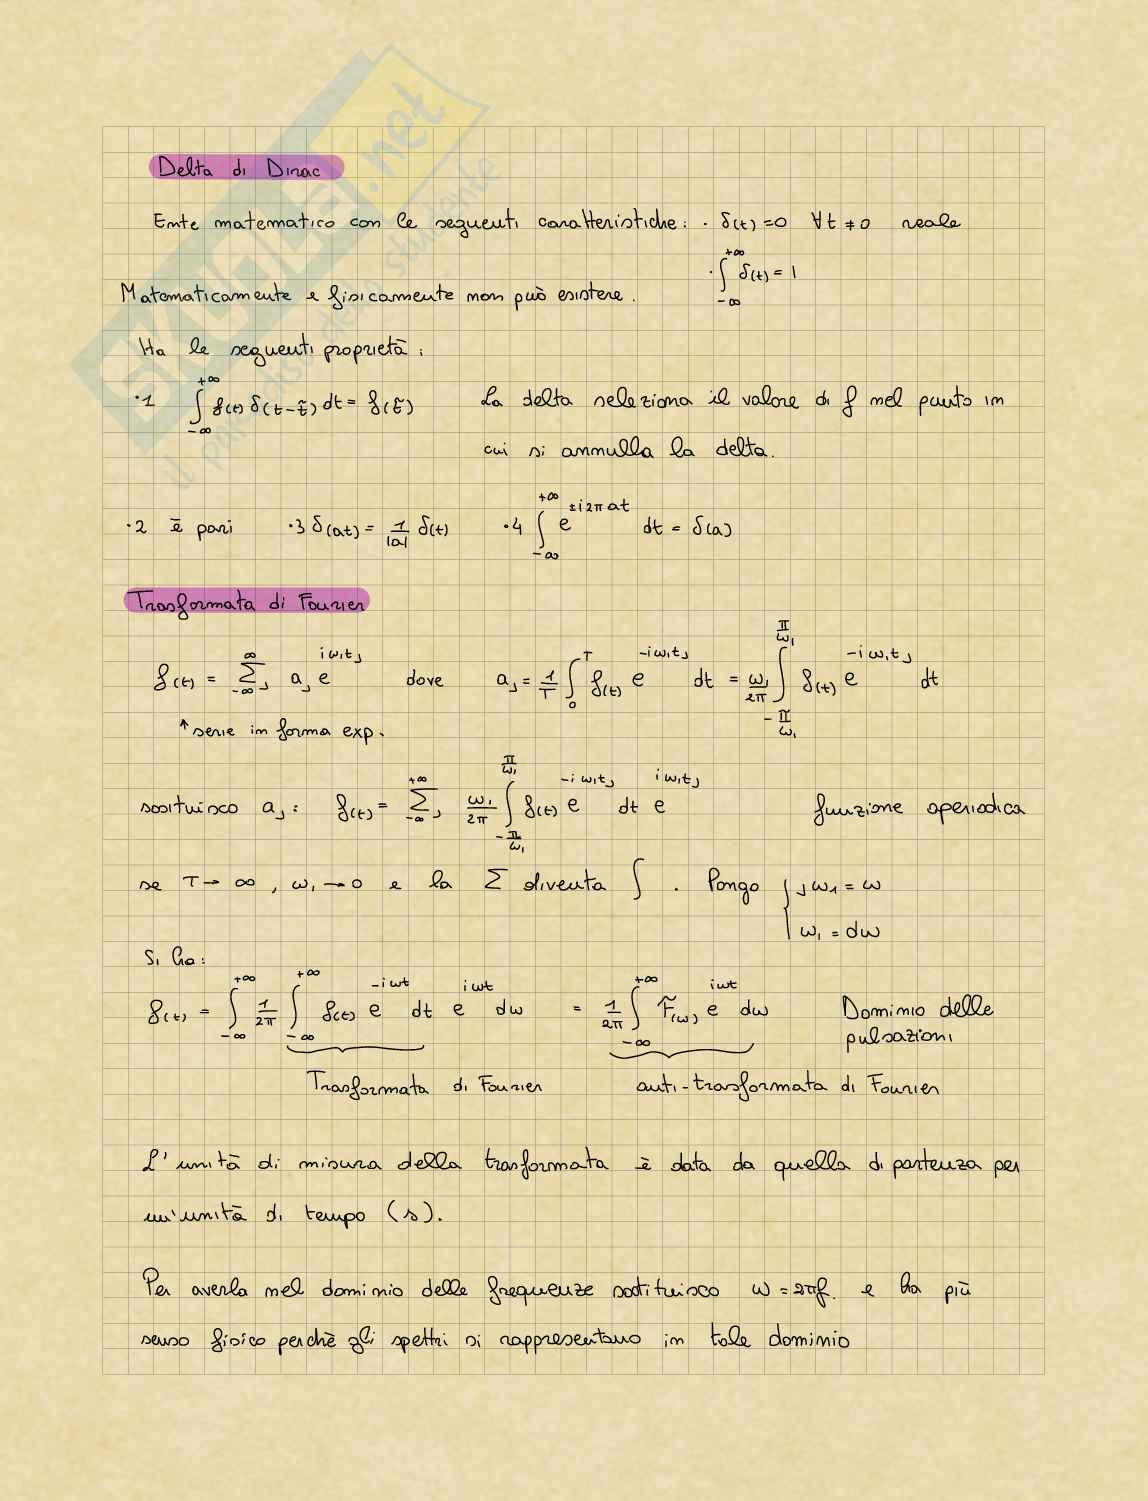 Delta di Dirac
Ente matematico con le seguenti caratteristiche: · δ(t) = 0 ∀t ≠ 0 reale
· ∫_{-∞}^{+∞} δ(t) = 1
Matematicamente e fisicamente non può esistere.
Ha le seguenti proprietà:
·1 ∫_{-∞}^{+∞} f(t) δ(t-t̃) dt = f(t̃) La delta seleziona il valore di f nel punto in
cui si annulla la delta.
·2 è pari ·3 δ(at) = 1/|a| δ(t) ·4 ∫_{-∞}^{+∞} e^{±i2πat} dt = δ(a)
Trasformata di Fourier
f(t) = Σ_{-∞ j}^{∞} a_j e^{iω₁t_j} dove a_j = 1/T ∫_0^T f(t) e^{-iω₁t_j} dt = ω₁/2π ∫_{-π/ω₁}^{π/ω₁} f(t) e^{-iω₁t_j} dt
↑ serie in forma exp.
sostituisco a_j: f(t) = Σ_{-∞ j}^{+∞} ω₁/2π ∫_{-π/ω₁}^{π/ω₁} f(t) e^{-iω₁t_j} dt e^{iω₁t_j} funzione aperiodica
se T→ ∞, ω₁→0 e la Σ diventa ∫. Pongo { jω₁ = ω
ω₁ = dω
Si ha:
f(t) = ∫_{-∞}^{+∞} 1/2π ∫_{-∞}^{+∞} f(t) e^{-iωt} dt e^{iωt} dω = 1/2π ∫_{-∞}^{+∞} F̃(ω) e^{iωt} dω Dominio delle
pulsazioni
Trasformata di Fourier anti-trasformata di Fourier
L'unità di misura della trasformata è data da quella di partenza per
un'unità di tempo (s).
Per averla nel dominio delle frequenze sostituisco ω = 2πf. e ha più
senso fisico perchè gli spettri si rappresentano in tale dominio
SKUOLA.net
il paradiso dello studente